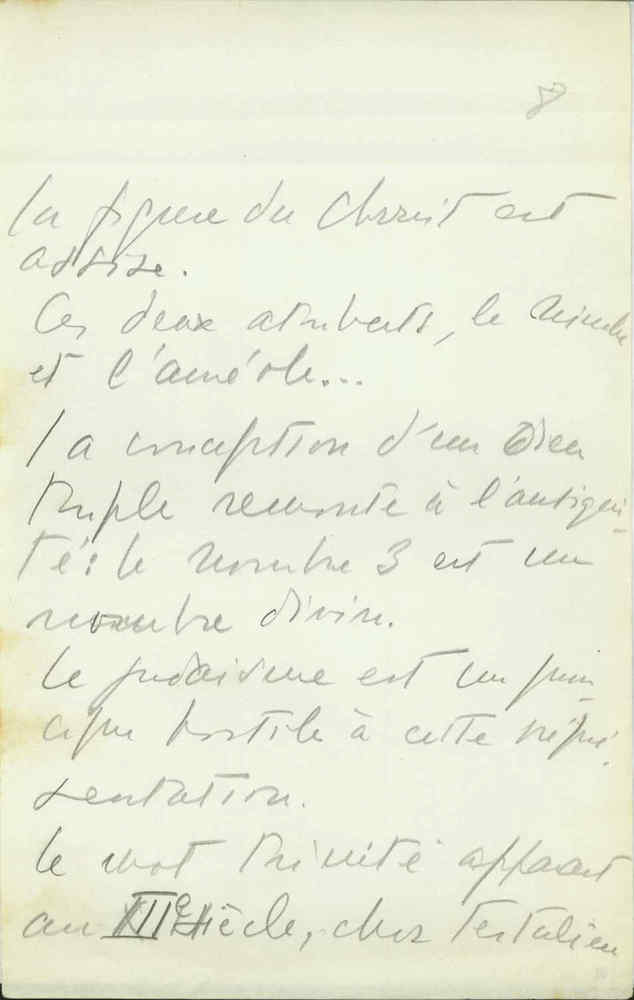 8
la figure du Christ est
assise.
Ces deux attributs, le nimbe
et l'auréole...
la conception d'un Dieu
triple remonte à l'antiqui-
té: le nombre 3 est un
nombre divin.
Le judaïsme est un prin-
cipe hostile à cette repré-
sentation.
Le mot Trinité apparait
au IIe siècle, chez Tertulien